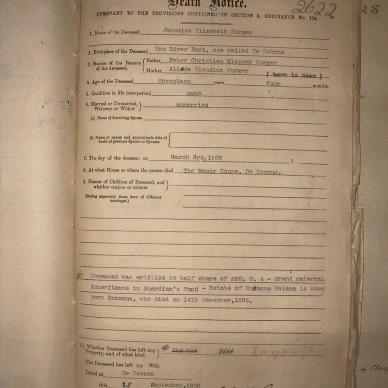 Death Notice. 2622
PURSUANT TO THE PROVISIONS CONTAINED IN SECTION 9, ORDINANCE No. 104.
1. Name of the Deceased Jacomina Elizabeth Burger
2. Birthplace of the Deceased Hex River East, now called De Doorns
3. Names of the Parents of the deceased. Father Pieter Christian Burger
Mother Claudina Burger ( born le Roex )
4. Age of the Deceased Seventeen years four months.
5. Condition in life (occupation) none
6. Married or Unmarried, Widower or Widow unmarried
(a) Name of Surviving Spouse
(b) Name or names and approximate date of death of previous Spouse or Spouses
7. The day of the decease: on March 3rd, 1909
8. At what House or where the person died The Manor House, De Doorns.
9. Names of Children of Deceased, and whether majors or minors
(Stating separately those born of different marriages.)
Deceased was entitled to half share of - Grand maternal
Inheritance in Guardian's Fund - Estate of Helena le Roex
born Erasmus, who died on 14th December, 1895.
10. Whether Deceased has left any Property, and of what kind
The Deceased has left no Will.
Dated at De Doorns
this September,